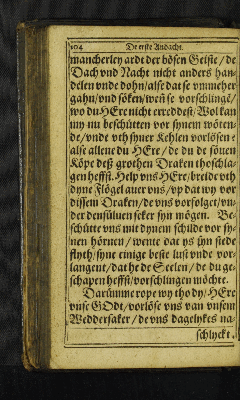 104 De erste Andacht.
mancherley ardt der bösen Geiste / de
Dach vnd Nacht nicht anders han-
delen vnde dohn / alse dat se vmmeher
gahn / vnd söken / wen̄ se vorschlingē /
wo du HEre nicht erreddest / Wol kan
my nu beschütten vor synem wöten-
de / vnde vth syner Kehlen vorlösen :
alse allene du HEre / de du de söuen
Köpe deß grothen Draken thoschla-
gen heffst. Help vns HEre / breide vth
dyne Flögel auer vns / vp dat wy vor
dissem Draken / de vns vorfolget / vn-
der densüluen seker syn mögen. Be-
schütte vns mit dynem schilde vor sy-
nen hörnen / wente dat ys syn stede
flyth / syne einige beste lust vnde vor-
langent / dat he de Seelen / de du ge-
schapen heffst / vorschlingen möchte.
Darümme rope wy tho dy / HEre
vnse GOdt / vorlöse vns van vnsem
Weddersaker / de vns dagelykes na-
schlycke .